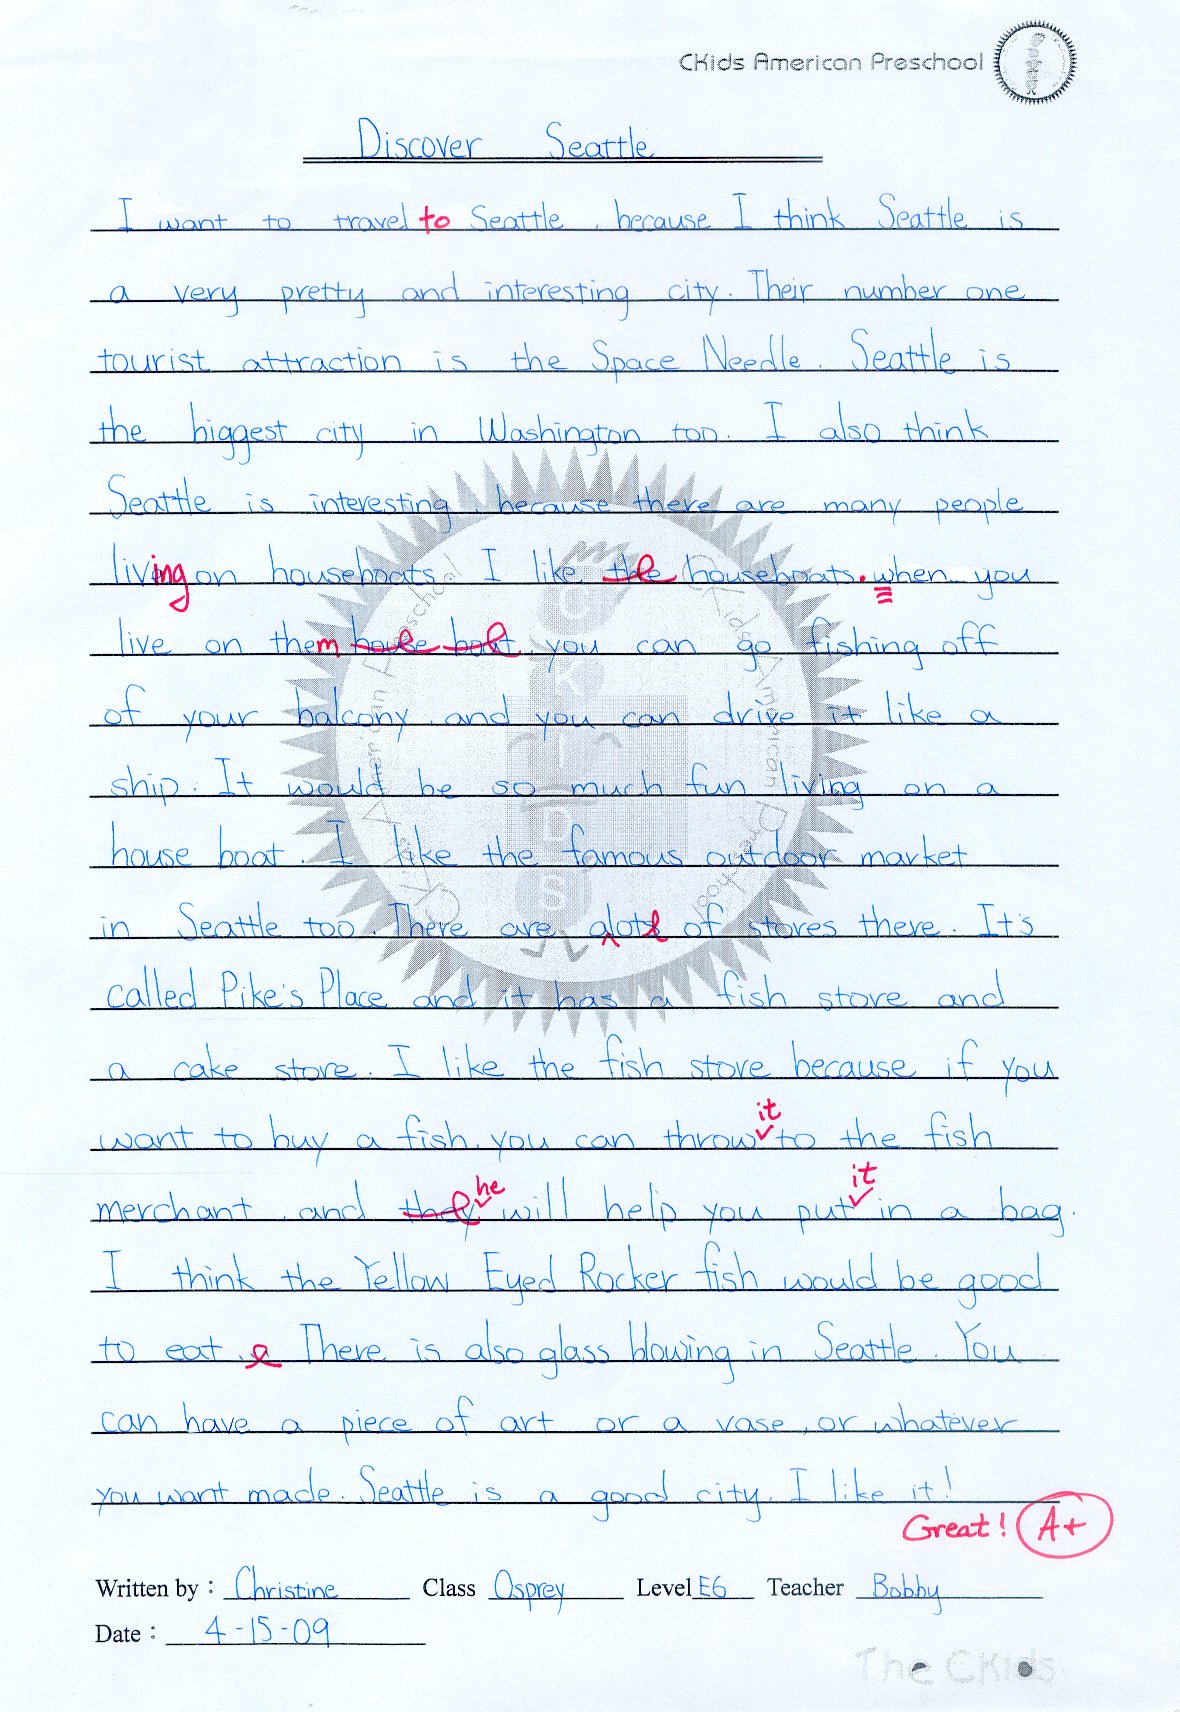 CKids American Preschool
Discover Seattle
I want to travel to Seattle, because I think Seattle is
a very pretty and interesting city. Their number one
tourist attraction is the Space Needle. Seattle is
the biggest city in Washington too. I also think
Seattle is interesting, because there are many people
living on houseboats. I like the houseboats. when you
live on them house boat, you can go fishing off
of your balcony, and you can drive it like a
ship. It would be so much fun living on a
house boat. I like the famous outdoor market
in Seattle too. There are a lots of stores there. It's
called Pike's Place and it has a fish store and
a cake store. I like the fish store because if you
it
want to buy a fish, you can throw to the fish
he it
merchant, and they will help you put in a bag.
I think the Yellow Eyed Rocker fish would be good
to eat. There is also glass blowing in Seattle. You
can have a piece of art or a vase, or whatever
you want made. Seattle is a good city. I like it!
Great! A+
Written by : Christine Class Osprey Level E6 Teacher Bobby
Date : 4-15-09
The CKids